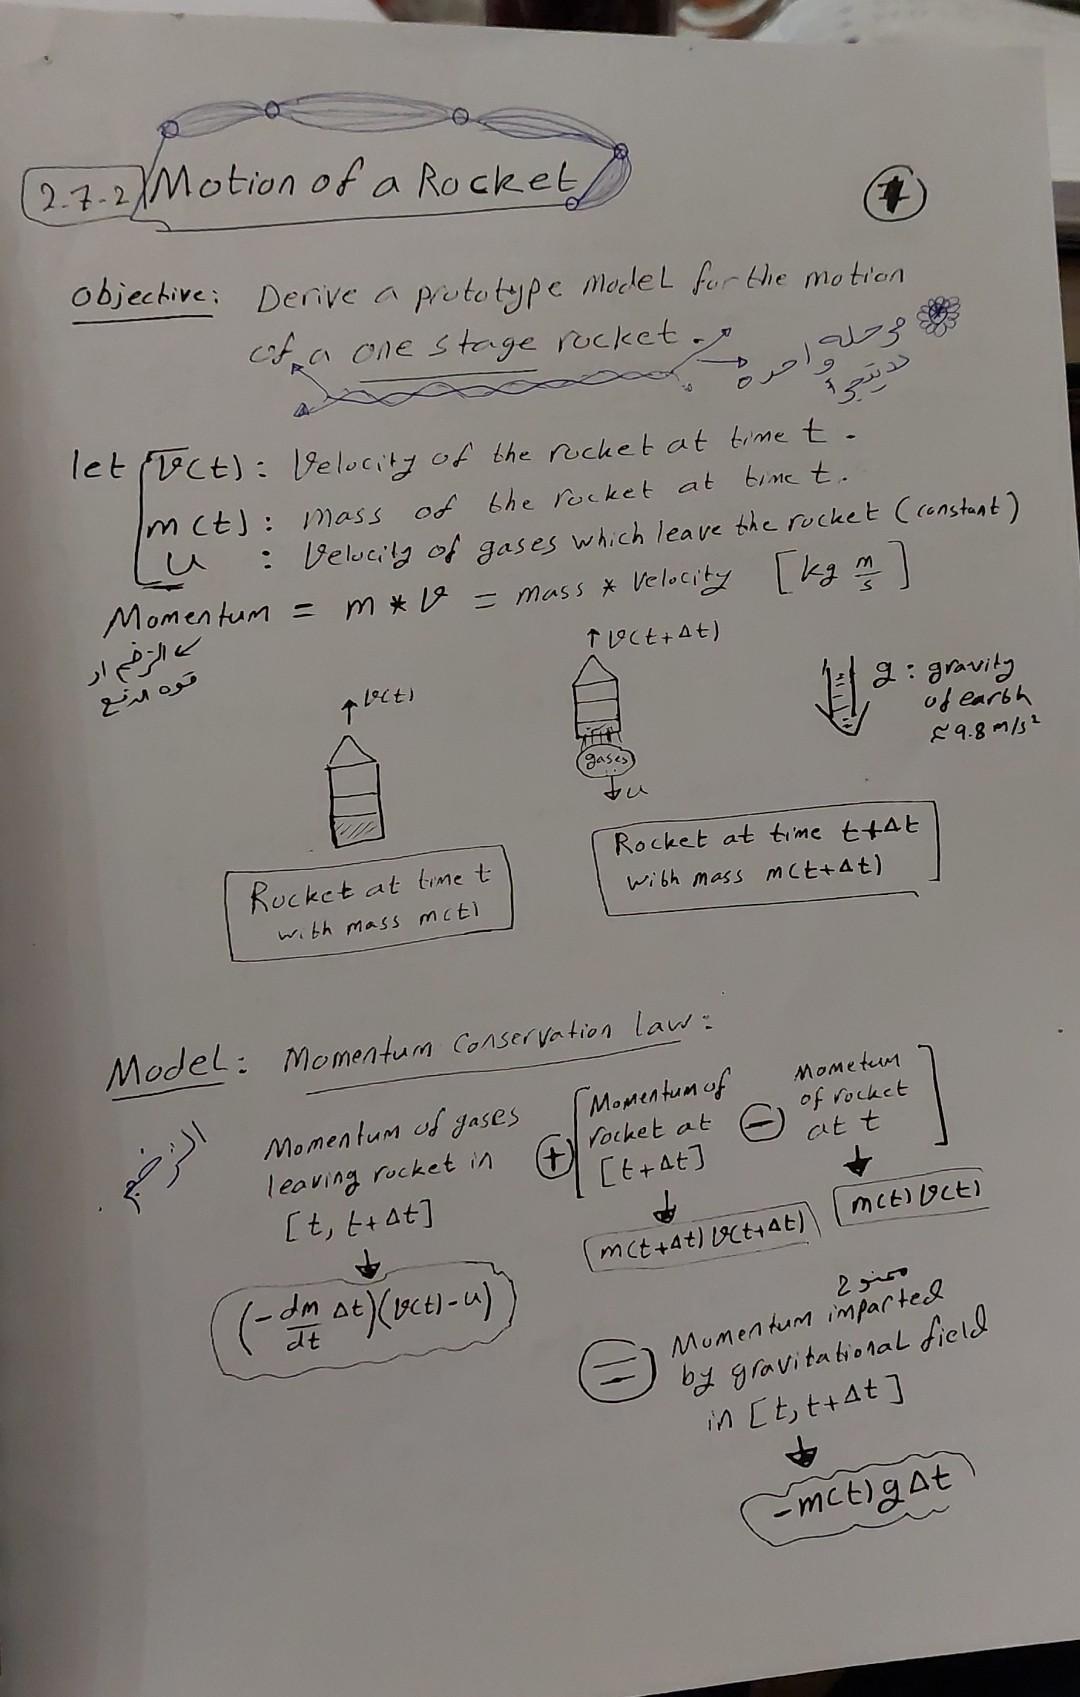 2.7.2 Motion of a Rocket
objective: Derive a prototype Model for the motion
of a one stage rocket.
مرحله
واحده
let v(t): Velocity of the rocket at time t.
m(t): mass of the rocket at time t.
u : Velocity of gases which leave the rocket (constant)
Momentum = m * v = mass * velocity [kg m/s]
الزخم او
قوه الدفع
v(t)
v(t+Δt)
gases
u
g: gravity
of earth
≈ 9.8 m/s²
Rocket at time t
with mass m(t)
Rocket at time t+Δt
with mass m(t+Δt)
Model: Momentum Conservation law:
الزخم
Momentum of gases
leaving rocket in
[t, t+Δt]
(-dm/dt Δt)(v(t)-u)
+
[Momentum of
rocket at
[t+Δt]
m(t+Δt) v(t+Δt)
-
Mometum
of rocket
at t]
m(t) v(t)
=
Momentum imparted
by gravitational field
in [t, t+Δt]
-m(t) g Δt